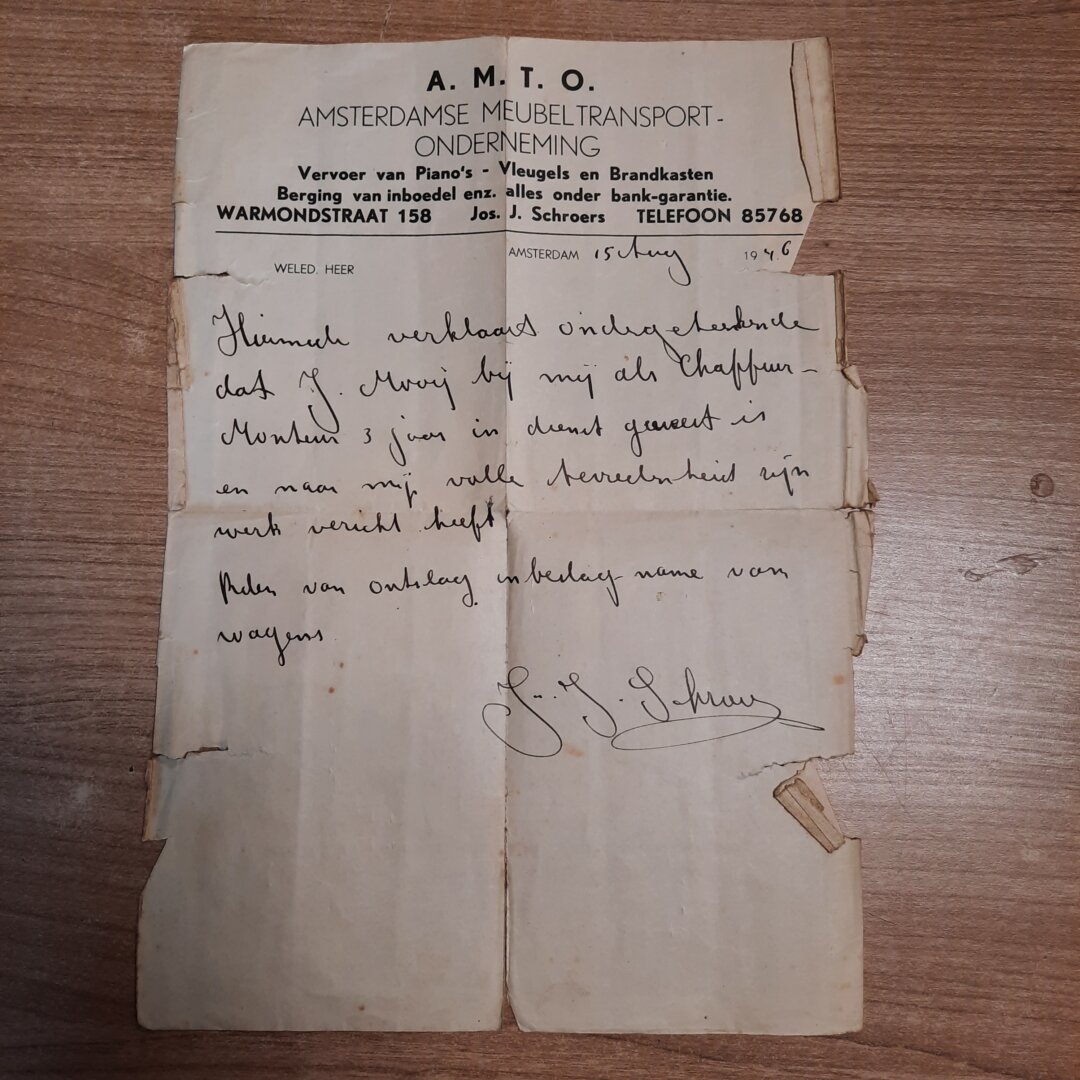 A. M. T. O.
AMSTERDAMSE MEUBELTRANSPORT-
ONDERNEMING
Vervoer van Piano's - Vleugels en Brandkasten
Berging van inboedel enz. alles onder bank-garantie.
WARMONDSTRAAT 158 Jos. J. Schroers TELEFOON 85768
AMSTERDAM 15 Aug 1946
WELED. HEER
Hiermede verklaart ondergeteekende
dat J. Mooij bij mij als Chaffeur-
Monteur 3 jaar in dienst geweest is
en naar mijn volle tevredenheid zijn
werk vericht heeft
Reden van ontslag inbeslag-name van
wagens
Jos. J. Schroers